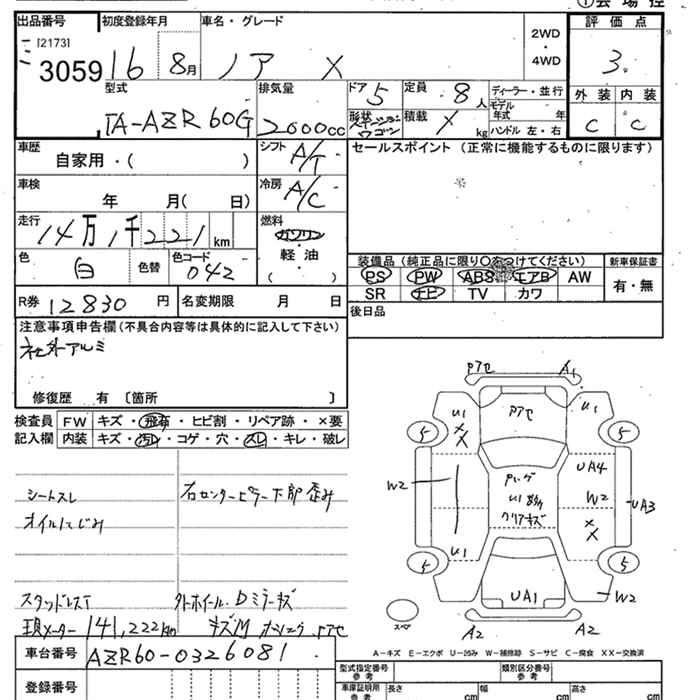 ①会場控
出品番号 初度登録年月 車名・グレード 2WD・4WD 評価点
[2173]
3059 16 8月 ノア X 3.
型式 排気量 ドア 5 定員 8人 ディーラー・並行 外装 内装
TA-AZR60G 2000cc 形状 ステーションワゴン 積載 kg モデル年式 年 ハンドル 左・右 C C
車歴 自家用・( ) シフト A/T セールスポイント (正常に機能するものに限ります)
車検 年 月( 日) 冷房 A/C
走行 14万1千221km 燃料 ガソリン
軽油
( )
色 白 色替 色コード 042
装備品 (純正品に限り○をつけてください) 新車保証書
PS PW ABS エアB AW 有・無
SR ナビ TV カワ
R券 12830円 名変期限 月 日
後日品
注意事項申告欄(不具合内容等は具体的に記入して下さい)
社外アルミ
修復歴 有 〔箇所 〕
検査員 FW キズ・飛石・ヒビ割・リペア跡・×要
記入欄 内装 キズ・汚レ・コゲ・穴・スレ・キレ・破レ
シートスレ 右センターピラー下部歪み
オイルにじみ
スタッドレスT 外ホイール・Dミラーキズ
現メーター 141,222km キズM
車台番号 AZR60-0326081
登録番号
Pアセ A1
U1 Pアセ U1
5 X X 5
UA4
W2 U1 W2 UA3
クリアキズ X X
U1
5 5
UA1 W2
スペア A2 A2
A-キズ E-エクボ U-凹み W-補修跡 S-サビ C-腐食 XX-交換済
型式指定番号 参考 類別区分番号 参考
車庫証明用 参考 長さ cm 幅 cm 高さ cm